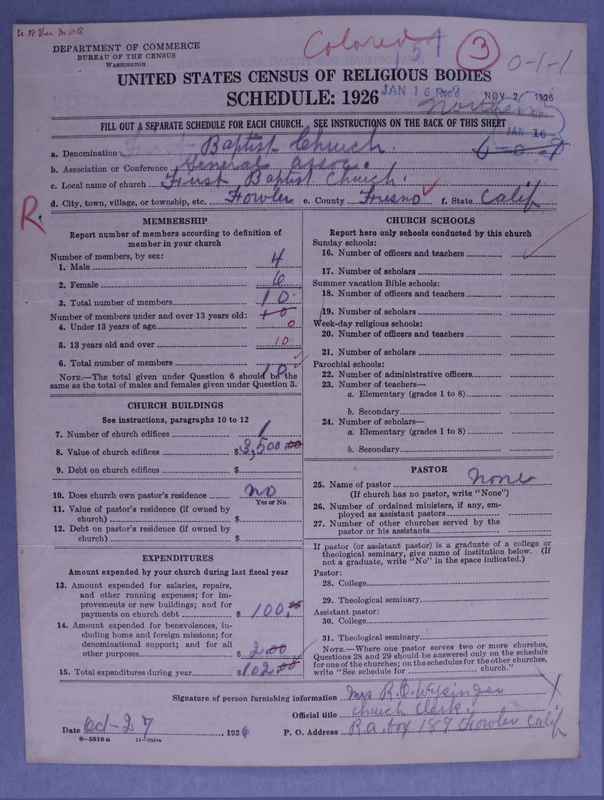 DEPARTMENT OF COMMERCE
BUREAU OF THE CENSUS
WASHINGTON
Colored
151
3
0-1-1
UNITED STATES CENSUS OF RELIGIOUS BODIES
SCHEDULE: 1926
JAN 16 Rec'd
NOV 2 1926
Northern
JAN 16
FILL OUT A SEPARATE SCHEDULE FOR EACH CHURCH. SEE INSTRUCTIONS ON THE BACK OF THIS SHEET
a. Denomination First Baptist Church.
b. Association or Conference General Assoc.
c. Local name of church First Baptist Church.
d. City, town, village, or township, etc. Fowler e. County Fresno f. State Calif
R.
MEMBERSHIP
Report number of members according to definition of member in your church
Number of members, by sex:
1. Male 4
2. Female 6
3. Total number of members 10
Number of members under and over 13 years old: 10
4. Under 13 years of age 0
5. 13 years old and over 10
6. Total number of members 10
NOTE.—The total given under Question 6 should be the same as the total of males and females given under Question 3.
CHURCH BUILDINGS
See instructions, paragraphs 10 to 12
7. Number of church edifices 1
8. Value of church edifices $3,500.00
9. Debt on church edifices $
10. Does church own pastor's residence no
Yes or No
11. Value of pastor's residence (if owned by church) $
12. Debt on pastor's residence (if owned by church) $
EXPENDITURES
Amount expended by your church during last fiscal year
13. Amount expended for salaries, repairs, and other running expenses; for improvements or new buildings; and for payments on church debt $ 100.
14. Amount expended for benevolences, including home and foreign missions; for denominational support; and for all other purposes $ 2.00
15. Total expenditures during year $102.00
CHURCH SCHOOLS
Report here only schools conducted by this church
Sunday schools:
16. Number of officers and teachers
17. Number of scholars
Summer vacation Bible schools:
18. Number of officers and teachers
19. Number of scholars
Week-day religious schools:
20. Number of officers and teachers
21. Number of scholars
Parochial schools:
22. Number of administrative officers
23. Number of teachers—
a. Elementary (grades 1 to 8)
b. Secondary
24. Number of scholars—
a. Elementary (grades 1 to 8)
b. Secondary
PASTOR
25. Name of pastor None
(If church has no pastor, write "None")
26. Number of ordained ministers, if any, employed as assistant pastors
27. Number of other churches served by the pastor or his assistants
If pastor (or assistant pastor) is a graduate of a college or theological seminary, give name of institution below. (If not a graduate, write "No" in the space indicated.)
Pastor:
28. College
29. Theological seminary
Assistant pastor:
30. College
31. Theological seminary
NOTE.—Where one pastor serves two or more churches, Questions 28 and 29 should be answered only on the schedule for one of the churches; on the schedules for the other churches, write "See schedule for church."
Signature of person furnishing information Mrs R.O. Wysinger
Official title Church Clerk.
Date Oct-27, 1926 P. O. Address R.a. box 189 Fowler Calif
8-5518a 11-9554a